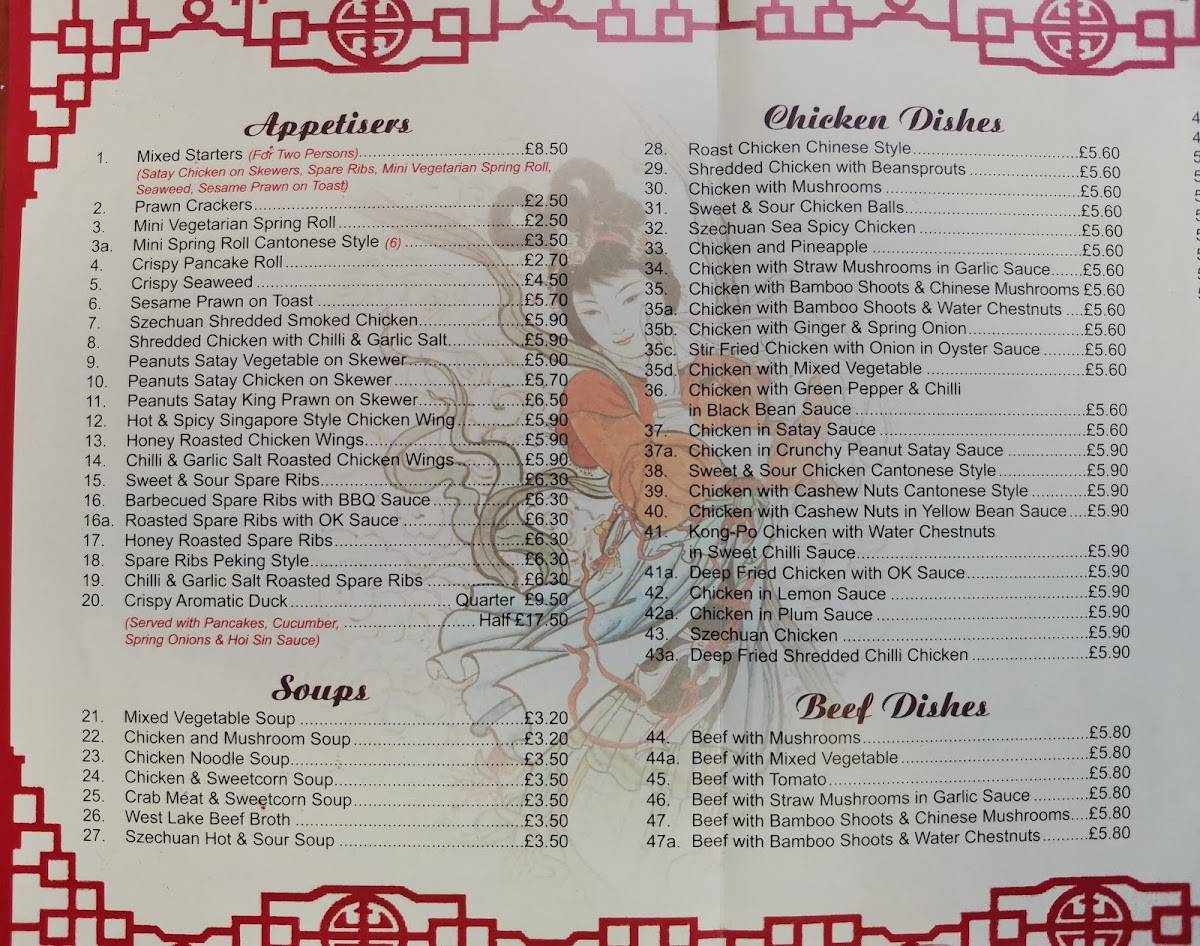 Appetisers
1. Mixed Starters (For Two Persons)....£8.50
(Satay Chicken on Skewers, Spare Ribs, Mini Vegetarian Spring Roll,
Seaweed, Sesame Prawn on Toast)
2. Prawn Crackers....£2.50
3. Mini Vegetarian Spring Roll....£2.50
3a. Mini Spring Roll Cantonese Style (6)....£3.50
4. Crispy Pancake Roll....£2.70
5. Crispy Seaweed....£4.50
6. Sesame Prawn on Toast....£5.70
7. Szechuan Shredded Smoked Chicken....£5.90
8. Shredded Chicken with Chilli & Garlic Salt....£5.90
9. Peanuts Satay Vegetable on Skewer....£5.00
10. Peanuts Satay Chicken on Skewer....£5.70
11. Peanuts Satay King Prawn on Skewer....£6.50
12. Hot & Spicy Singapore Style Chicken Wing....£5.90
13. Honey Roasted Chicken Wings....£5.90
14. Chilli & Garlic Salt Roasted Chicken Wings....£5.90
15. Sweet & Sour Spare Ribs....£6.30
16. Barbecued Spare Ribs with BBQ Sauce....£6.30
16a. Roasted Spare Ribs with OK Sauce....£6.30
17. Honey Roasted Spare Ribs....£6.30
18. Spare Ribs Peking Style....£6.30
19. Chilli & Garlic Salt Roasted Spare Ribs....£6.30
20. Crispy Aromatic Duck....Quarter £9.50
(Served with Pancakes, Cucumber, ....Half £17.50
Spring Onions & Hoi Sin Sauce)
Soups
21. Mixed Vegetable Soup....£3.20
22. Chicken and Mushroom Soup....£3.20
23. Chicken Noodle Soup....£3.50
24. Chicken & Sweetcorn Soup....£3.50
25. Crab Meat & Sweetcorn Soup....£3.50
26. West Lake Beef Broth....£3.50
27. Szechuan Hot & Sour Soup....£3.50
Chicken Dishes
28. Roast Chicken Chinese Style....£5.60
29. Shredded Chicken with Beansprouts....£5.60
30. Chicken with Mushrooms....£5.60
31. Sweet & Sour Chicken Balls....£5.60
32. Szechuan Sea Spicy Chicken....£5.60
33. Chicken and Pineapple....£5.60
34. Chicken with Straw Mushrooms in Garlic Sauce....£5.60
35. Chicken with Bamboo Shoots & Chinese Mushrooms £5.60
35a. Chicken with Bamboo Shoots & Water Chestnuts....£5.60
35b. Chicken with Ginger & Spring Onion....£5.60
35c. Stir Fried Chicken with Onion in Oyster Sauce....£5.60
35d. Chicken with Mixed Vegetable....£5.60
36. Chicken with Green Pepper & Chilli
in Black Bean Sauce....£5.60
37. Chicken in Satay Sauce....£5.60
37a. Chicken in Crunchy Peanut Satay Sauce....£5.90
38. Sweet & Sour Chicken Cantonese Style....£5.90
39. Chicken with Cashew Nuts Cantonese Style....£5.90
40. Chicken with Cashew Nuts in Yellow Bean Sauce....£5.90
41. Kong-Po Chicken with Water Chestnuts
in Sweet Chilli Sauce....£5.90
41a. Deep Fried Chicken with OK Sauce....£5.90
42. Chicken in Lemon Sauce....£5.90
42a. Chicken in Plum Sauce....£5.90
43. Szechuan Chicken....£5.90
43a. Deep Fried Shredded Chilli Chicken....£5.90
Beef Dishes
44. Beef with Mushrooms....£5.80
44a. Beef with Mixed Vegetable....£5.80
45. Beef with Tomato....£5.80
46. Beef with Straw Mushrooms in Garlic Sauce....£5.80
47. Beef with Bamboo Shoots & Chinese Mushrooms....£5.80
47a. Beef with Bamboo Shoots & Water Chestnuts....£5.80